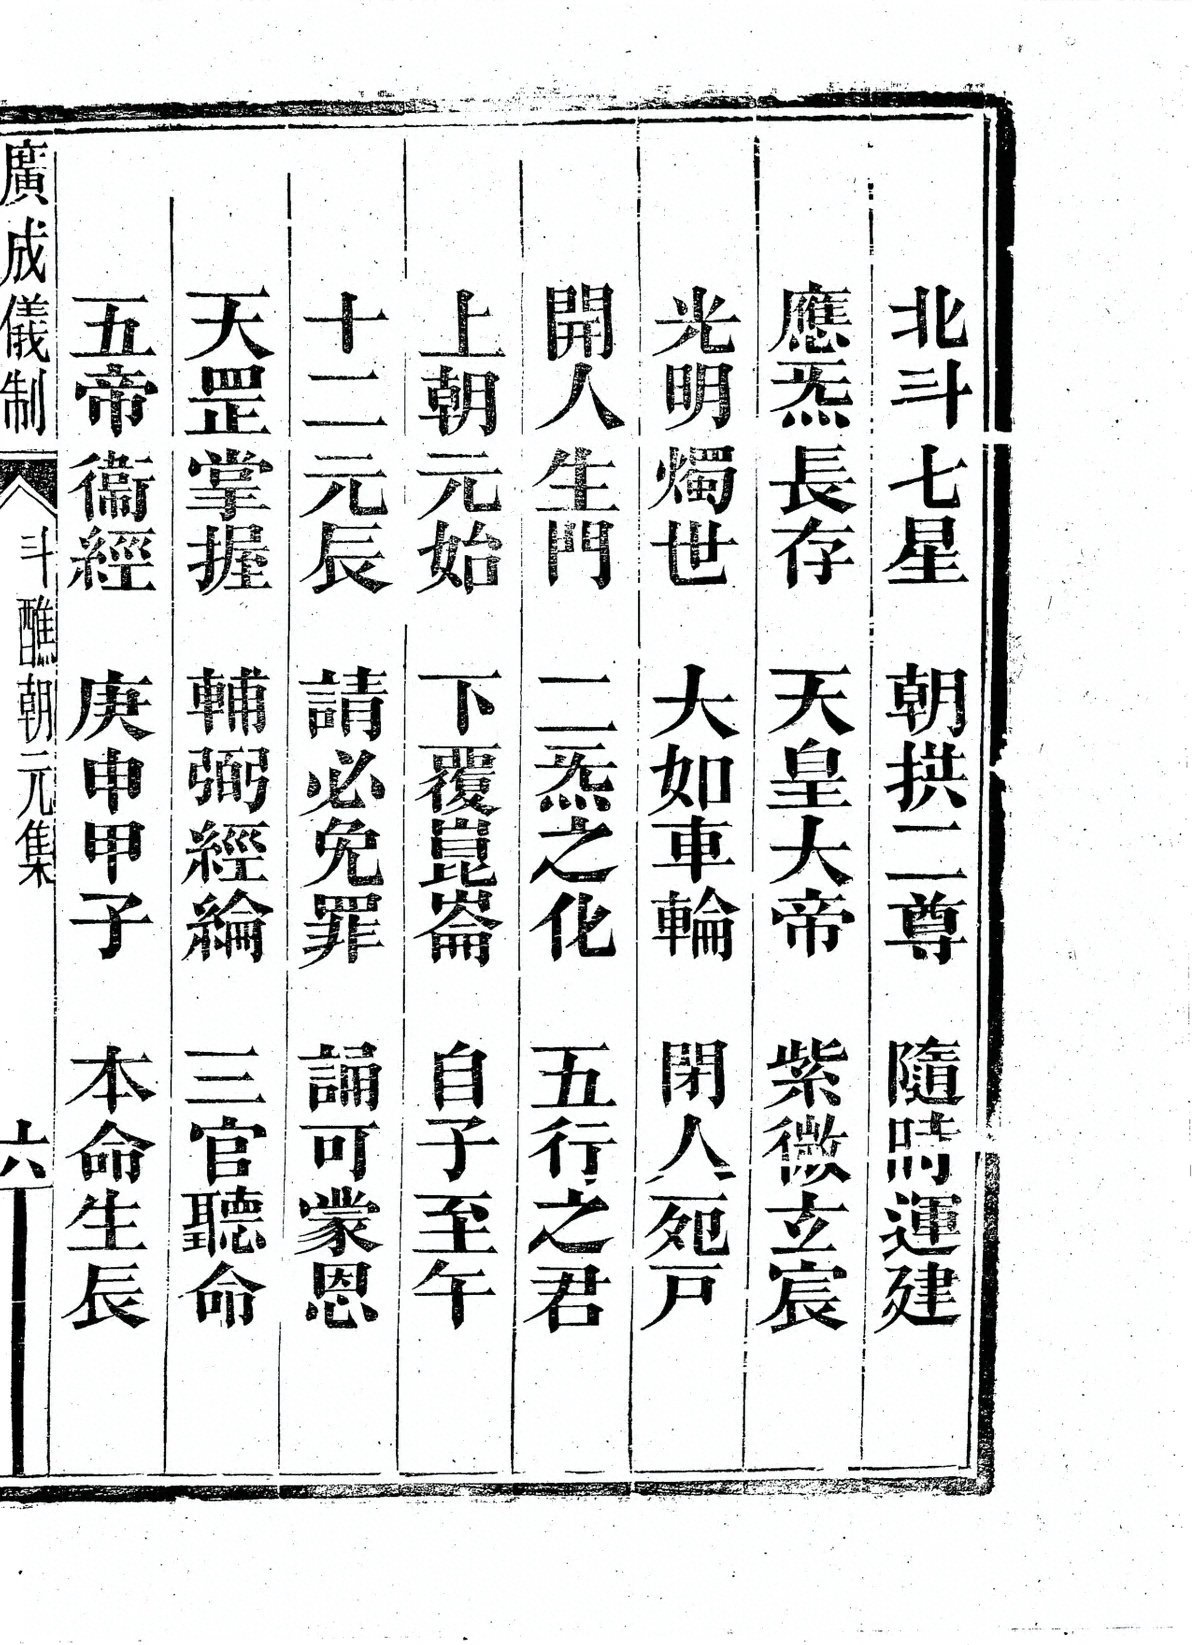 北斗七星　朝拱二尊　隨時運建
應炁長存　天皇大帝　紫微玄宸
光明燭世　大如車輪　閉人死戸
開人生門　二炁之化　五行之君
上朝元始　下覆崑崙　自子至午
十二元辰　請必免罪　誦可蒙恩
天罡掌握　輔弼經綸　三官聽命
五帝衞經　庚申甲子　本命生辰
廣成儀制　斗醮朝元集　六